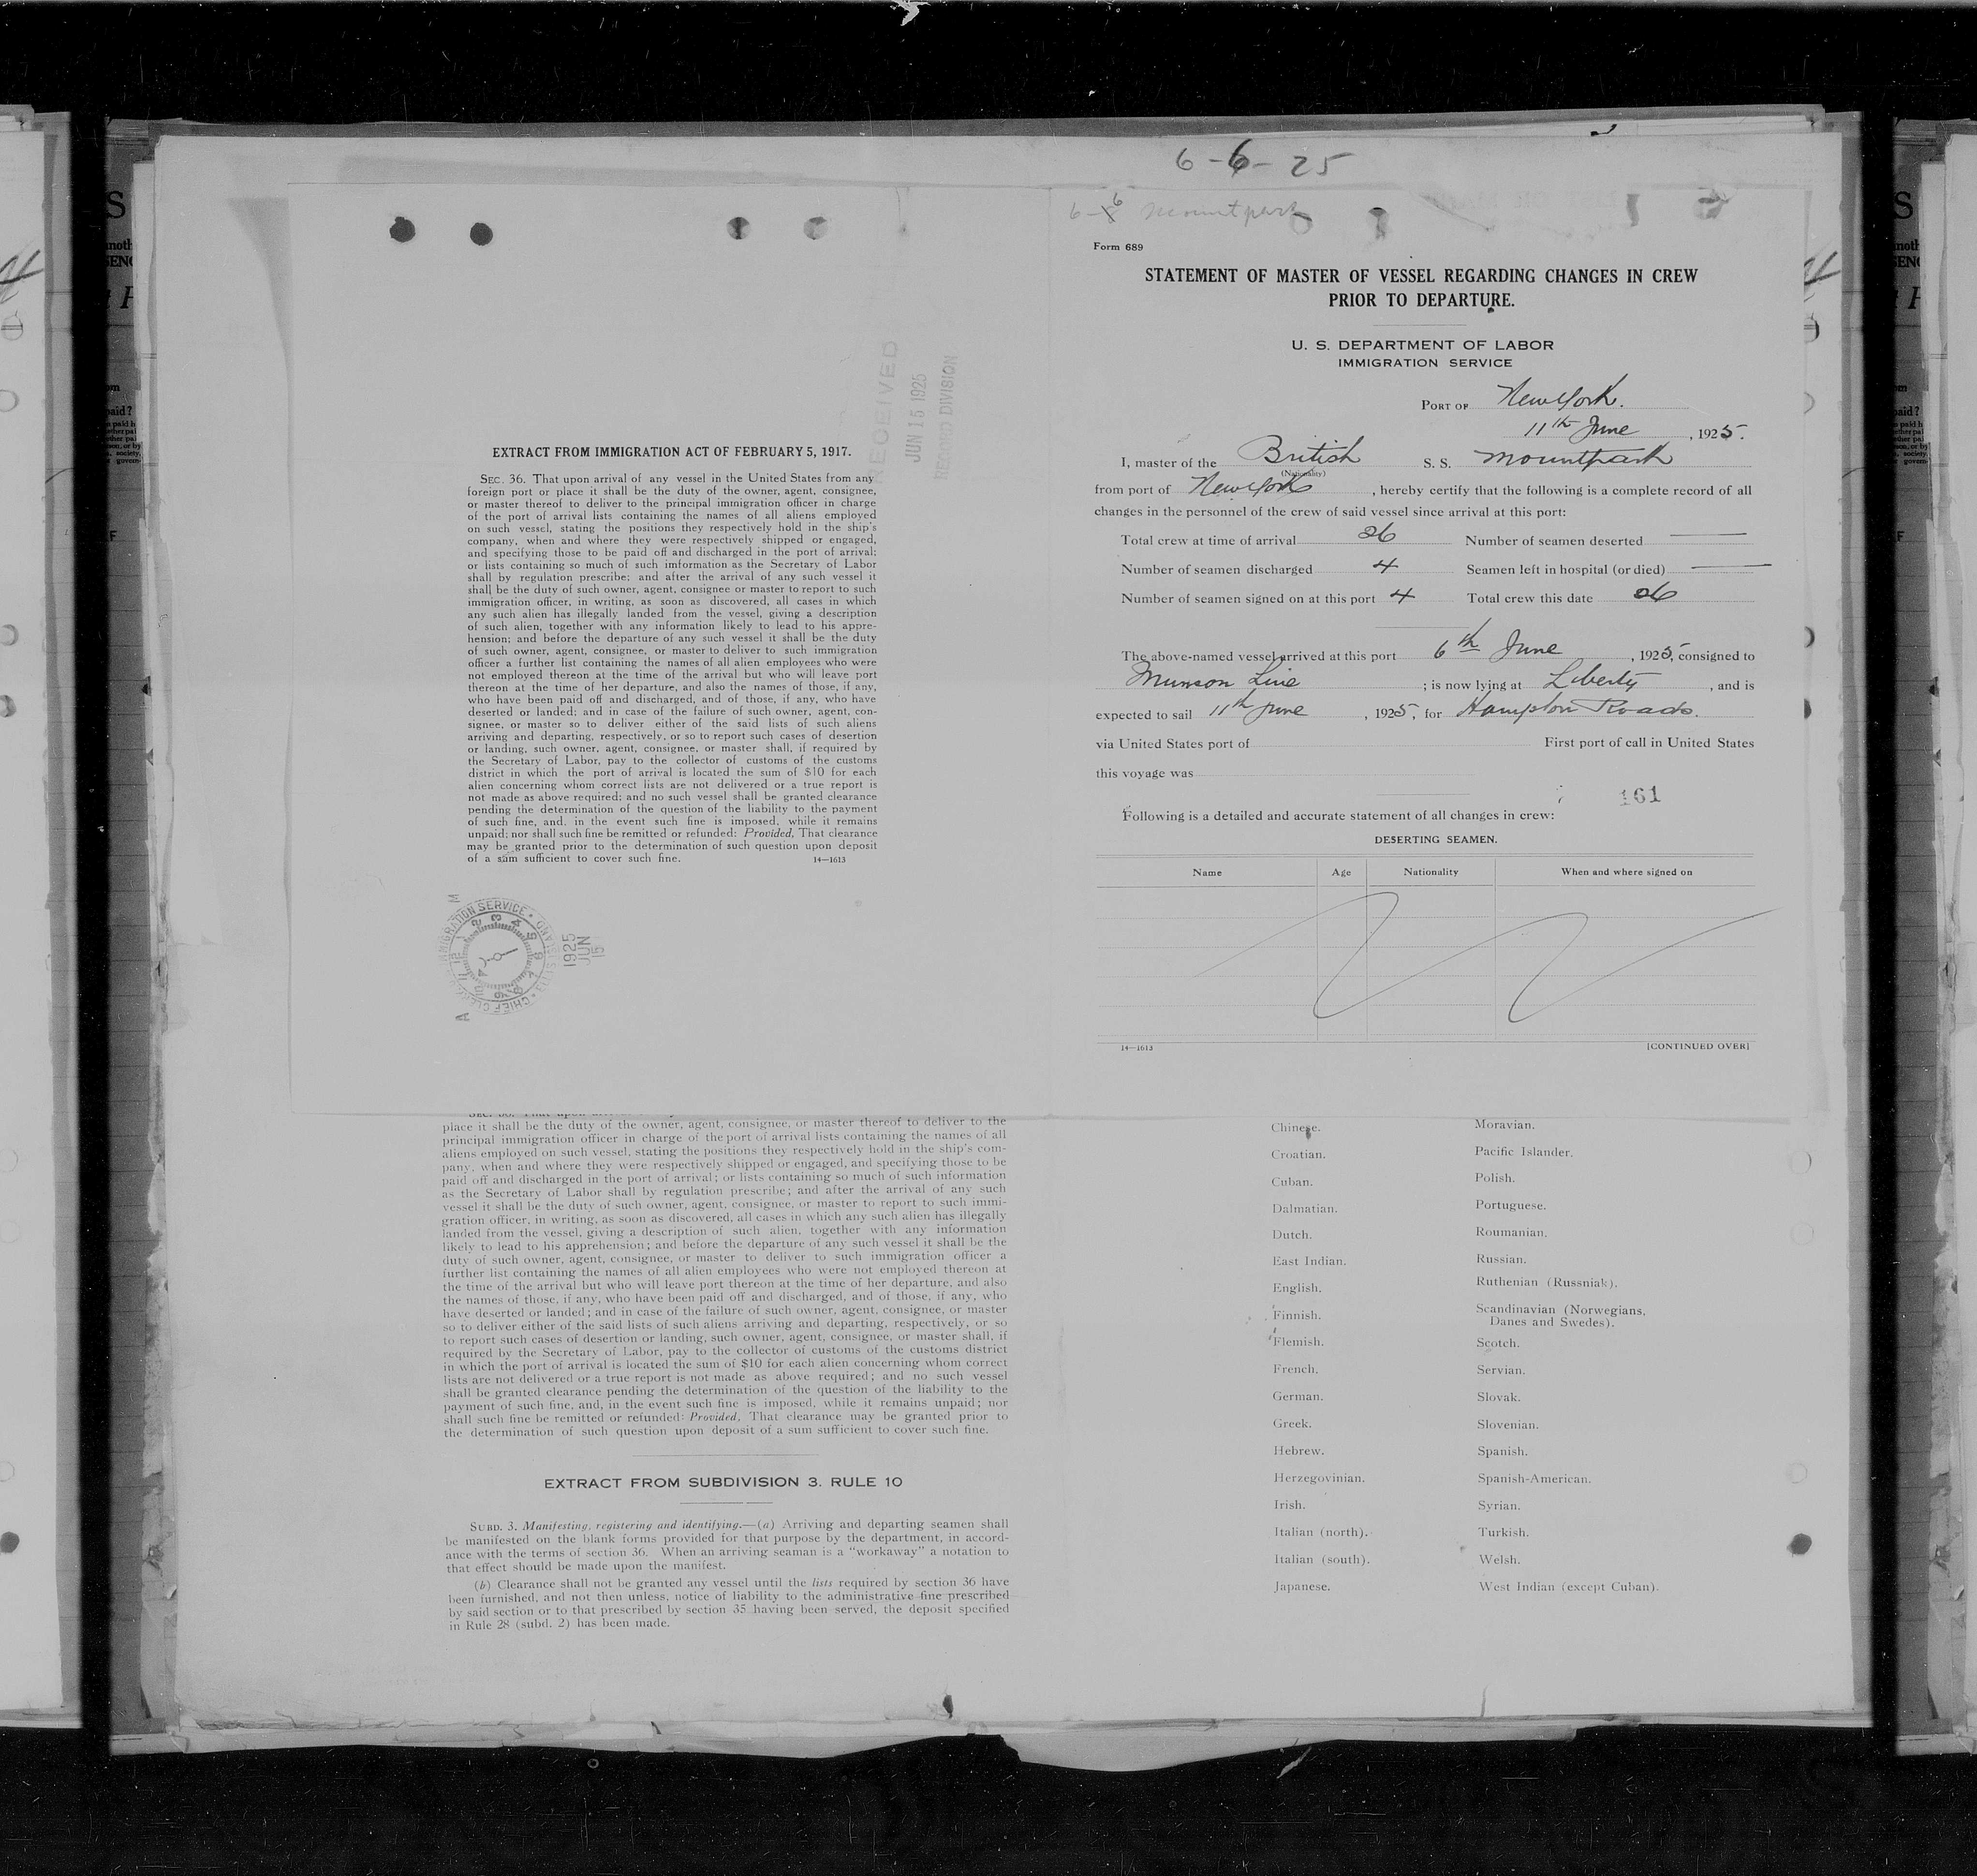 6-6-25
6-6 Mountpark
Form 689
STATEMENT OF MASTER OF VESSEL REGARDING CHANGES IN CREW
PRIOR TO DEPARTURE.
U. S. DEPARTMENT OF LABOR
IMMIGRATION SERVICE
PORT OF New York.
11th June, 1925.
I, master of the British S. S. Mountpark
(Nationality)
from port of New York, hereby certify that the following is a complete record of all
changes in the personnel of the crew of said vessel since arrival at this port:
Total crew at time of arrival 26 Number of seamen deserted
Number of seamen discharged 4 Seamen left in hospital (or died)
Number of seamen signed on at this port 4 Total crew this date 26
The above-named vessel arrived at this port 6th June, 1925, consigned to
Munson Line; is now lying at Liberty, and is
expected to sail 11th June, 1925, for Hampton Roads.
via United States port of First port of call in United States
this voyage was
161
Following is a detailed and accurate statement of all changes in crew:
DESERTING SEAMEN.
Name Age Nationality When and where signed on
14—1613 [CONTINUED OVER]
RECEIVED
JUN 15 1925
RECORD DIVISION
EXTRACT FROM IMMIGRATION ACT OF FEBRUARY 5, 1917.
SEC. 36. That upon arrival of any vessel in the United States from any
foreign port or place it shall be the duty of the owner, agent, consignee,
or master thereof to deliver to the principal immigration officer in charge
of the port of arrival lists containing the names of all aliens employed
on such vessel, stating the positions they respectively hold in the ship's
company, when and where they were respectively shipped or engaged,
and specifying those to be paid off and discharged in the port of arrival;
or lists containing so much of such imformation as the Secretary of Labor
shall by regulation prescribe; and after the arrival of any such vessel it
shall be the duty of such owner, agent, consignee or master to report to such
immigration officer, in writing, as soon as discovered, all cases in which
any such alien has illegally landed from the vessel, giving a description
of such alien, together with any information likely to lead to his appre-
hension; and before the departure of any such vessel it shall be the duty
of such owner, agent, consignee, or master to deliver to such immigration
officer a further list containing the names of all alien employees who were
not employed thereon at the time of the arrival but who will leave port
thereon at the time of her departure, and also the names of those, if any,
who have been paid off and discharged, and of those, if any, who have
deserted or landed; and in case of the failure of such owner, agent, con-
signee, or master so to deliver either of the said lists of such aliens
arriving and departing, respectively, or so to report such cases of desertion
or landing, such owner, agent, consignee, or master shall, if required by
the Secretary of Labor, pay to the collector of customs of the customs
district in which the port of arrival is located the sum of $10 for each
alien concerning whom correct lists are not delivered or a true report is
not made as above required; and no such vessel shall be granted clearance
pending the determination of the question of the liability to the payment
of such fine, and. in the event such fine is imposed, while it remains
unpaid; nor shall such fine be remitted or refunded: Provided, That clearance
may be granted prior to the determination of such question upon deposit
of a sum sufficient to cover such fine. 14—1613
IMMIGRATION SERVICE
1925
JUN
15
place it shall be the duty of the owner, agent, consignee, or master thereof to deliver to the
principal immigration officer in charge of the port of arrival lists containing the names of all
aliens employed on such vessel, stating the positions they respectively hold in the ship's com-
pany, when and where they were respectively shipped or engaged, and specifying those to be
paid off and discharged in the port of arrival; or lists containing so much of such information
as the Secretary of Labor shall by regulation prescribe; and after the arrival of any such
vessel it shall be the duty of such owner, agent, consignee, or master to report to such immi-
gration officer, in writing, as soon as discovered, all cases in which any such alien has illegally
landed from the vessel, giving a description of such alien, together with any information
likely to lead to his apprehension; and before the departure of any such vessel it shall be the
duty of such owner, agent, consignee, or master to deliver to such immigration officer a
further list containing the names of all alien employees who were not employed thereon at
the time of the arrival but who will leave port thereon at the time of her departure, and also
the names of those, if any, who have been paid off and discharged, and of those, if any, who
have deserted or landed; and in case of the failure of such owner, agent, consignee, or master
so to deliver either of the said lists of such aliens arriving and departing, respectively, or so
to report such cases of desertion or landing, such owner, agent, consignee, or master shall, if
required by the Secretary of Labor, pay to the collector of customs of the customs district
in which the port of arrival is located the sum of $10 for each alien concerning whom correct
lists are not delivered or a true report is not made as above required; and no such vessel
shall be granted clearance pending the determination of the question of the liability to the
payment of such fine, and, in the event such fine is imposed, while it remains unpaid; nor
shall such fine be remitted or refunded: Provided, That clearance may be granted prior to
the determination of such question upon deposit of a sum sufficient to cover such fine.
EXTRACT FROM SUBDIVISION 3. RULE 10
SUBD. 3. Manifesting, registering and identifying.—(a) Arriving and departing seamen shall
be manifested on the blank forms provided for that purpose by the department, in accord-
ance with the terms of section 36. When an arriving seaman is a "workaway" a notation to
that effect should be made upon the manifest.
(b) Clearance shall not be granted any vessel until the lists required by section 36 have
been furnished, and not then unless, notice of liability to the administrative fine prescribed
by said section or to that prescribed by section 35 having been served, the deposit specified
in Rule 28 (subd. 2) has been made.
Chinese. Moravian.
Croatian. Pacific Islander.
Cuban. Polish.
Dalmatian. Portuguese.
Dutch. Roumanian.
East Indian. Russian.
English. Ruthenian (Russniak).
Finnish. Scandinavian (Norwegians,
Danes and Swedes).
Flemish. Scotch.
French. Servian.
German. Slovak.
Greek. Slovenian.
Hebrew. Spanish.
Herzegovinian. Spanish-American.
Irish. Syrian.
Italian (north). Turkish.
Italian (south). Welsh.
Japanese. West Indian (except Cuban).